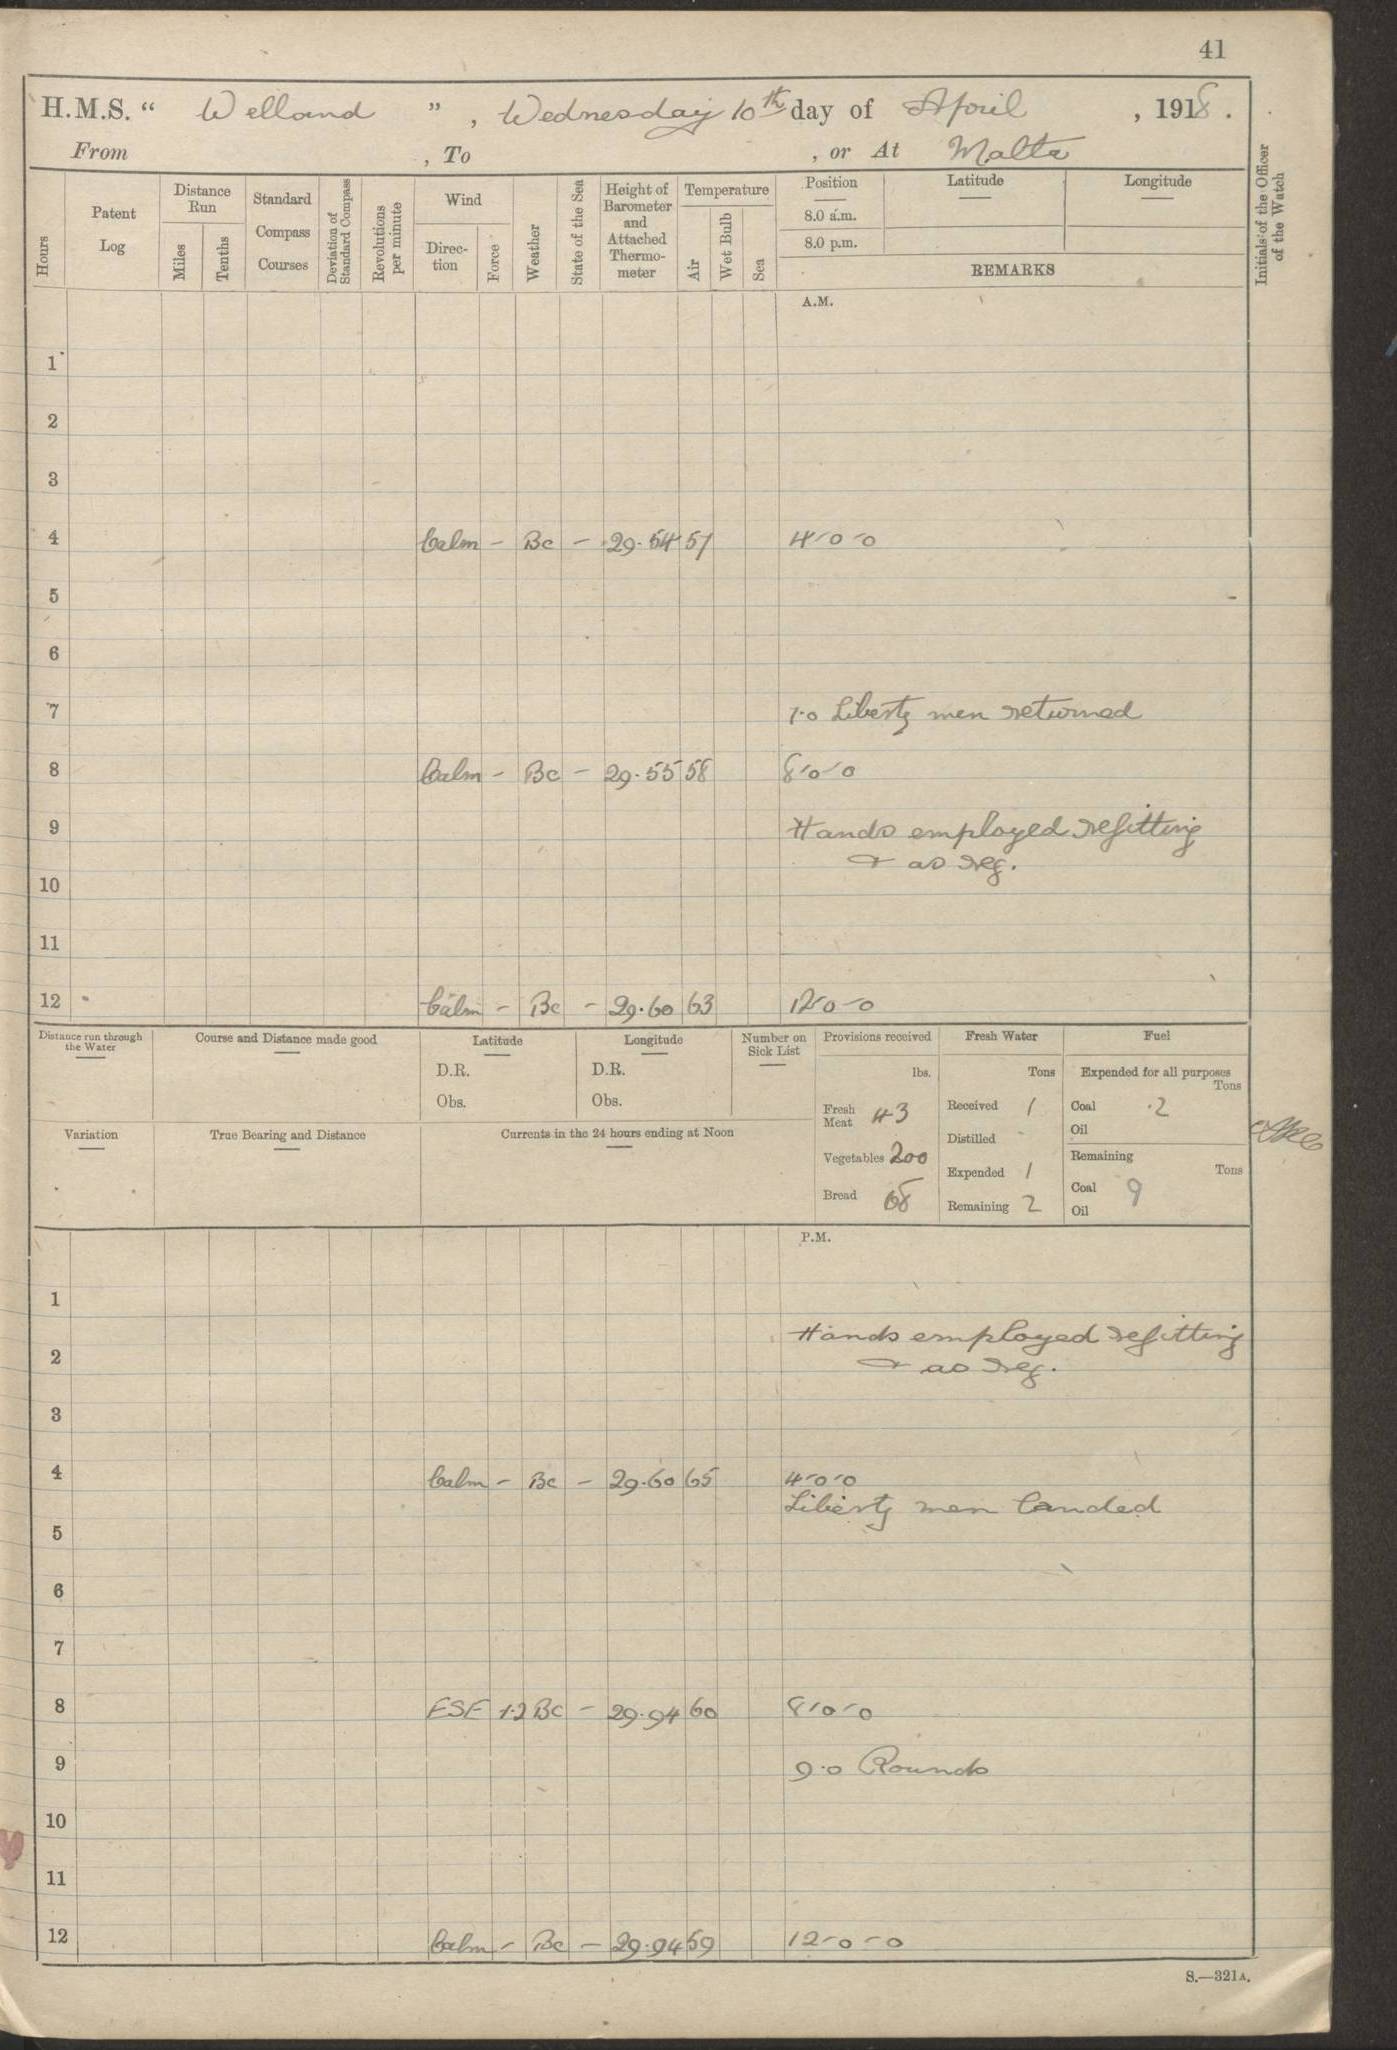 41
H.M.S. “ Welland ” , Wednesday 10th day of April , 1918 .
From , To , or At Malta
Hours
Patent Log
Distance Run
Miles
Tenths
Standard Compass Courses
Deviation of Standard Compass
Revolutions per minute
Wind
Direc-tion
Force
Weather
State of the Sea
Height of Barometer and Attached Thermo-meter
Temperature
Air
Wet Bulb
Sea
Position
8.0 a.m.
8.0 p.m.
Latitude
Longitude
REMARKS
Initials of the Officer of the Watch
A.M.
1
2
3
4 Calm - Bc - 29.54 57 4-0-0
5
6
7 7.0 Liberty men returned
8 Calm - Bc - 29.55 58 8-0-0
9 Hands employed refitting
& as req.
10
11
12 Calm - Bc - 29.60 63 12-0-0
Distance run through the Water
Course and Distance made good
Latitude
D.R.
Obs.
Longitude
D.R.
Obs.
Number on Sick List
Variation
True Bearing and Distance
Currents in the 24 hours ending at Noon
Provisions received
lbs.
Fresh Meat 43
Vegetables 200
Bread 68
Fresh Water
Tons
Received 1
Distilled -
Expended 1
Remaining 2
Fuel
Expended for all purposes
Tons
Coal .2
Oil
Remaining
Tons
Coal 9
Oil
P.M.
1
Hands employed refitting
2 & as req.
3
4 Calm - Bc - 29.60 65 4-0-0
Liberty men landed
5
6
7
8 ESE 1.2 Bc - 29.94 60 8-0-0
9 9.0 Rounds
10
11
12 Calm - Bc - 29.94 59 12-0-0
S.—321A.